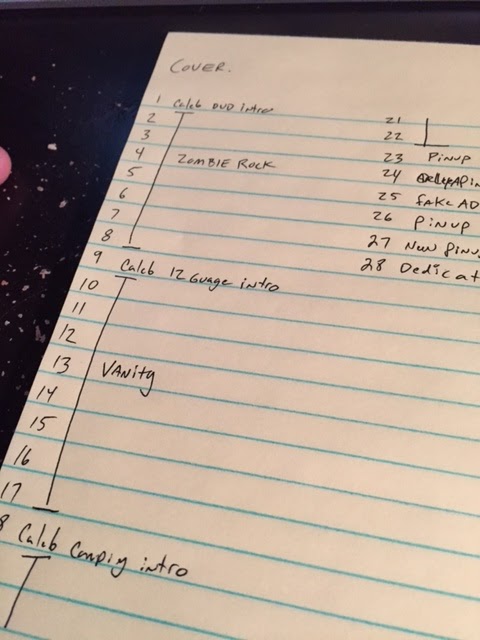 COVER.
1 Caleb DVD intro
2
3
4 ZOMBIE ROCK
5
6
7
8
9 Caleb 12 Guage intro
10
11
12
13 VANITY
14
15
16
17
8 Caleb intro
21
22
23 PINUP
24
25 FAKE AD
26 PINUP
27 New Pinu
28 Dedicat